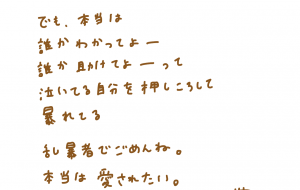 でも、本当は
誰かわかってよー
誰か助けてよーって
泣いてる自分を押しころして
暴れてる
乱暴者でごめんね。
本当は愛されたい。